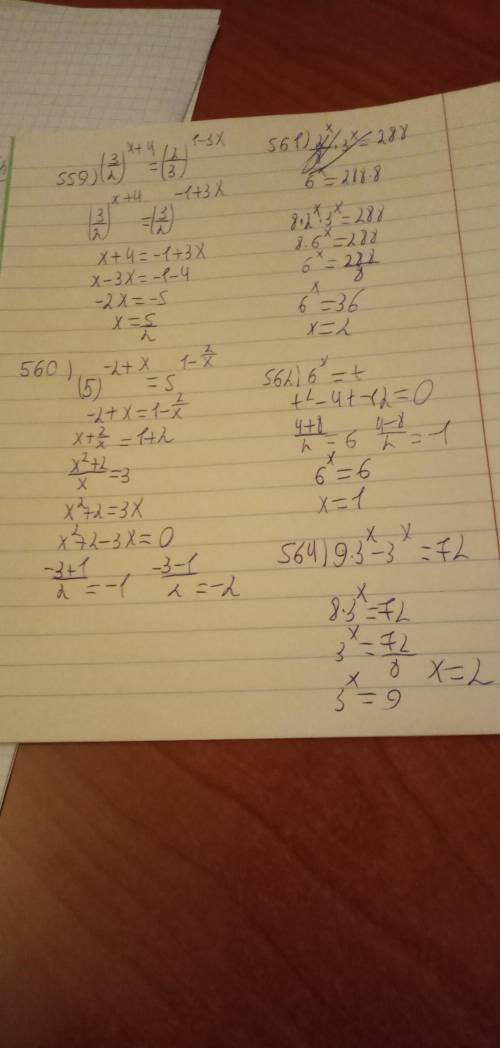 559) (3/2)^x+4 = (2/3)^1-3x
(3/2)^x+4 = (3/2)^-1+3x
x+4=-1+3x
x-3x=-1-4
-2x=-5
x=5/2
560) (5)^-2+x = 5^1-2/x
-2+x=1-2/x
x+2/x=1+2
x²+2/x=3
x²+2=3x
x²+2-3x=0
-3+1/2=-1 -3-1/2=-2
561)
·3^x=288
6^x=288·8
8·2^x·3^x=288
8·6^x=288
6^x=288/8
6^x=36
x=2
562) 6^x=t
t²-4t-12=0
4+8/2=6 4-8/2=-1
6^x=6
x=1
564) 9·3^x-3^x=72
8·3^x=72
3^x=72/8
3^x=9
x=2